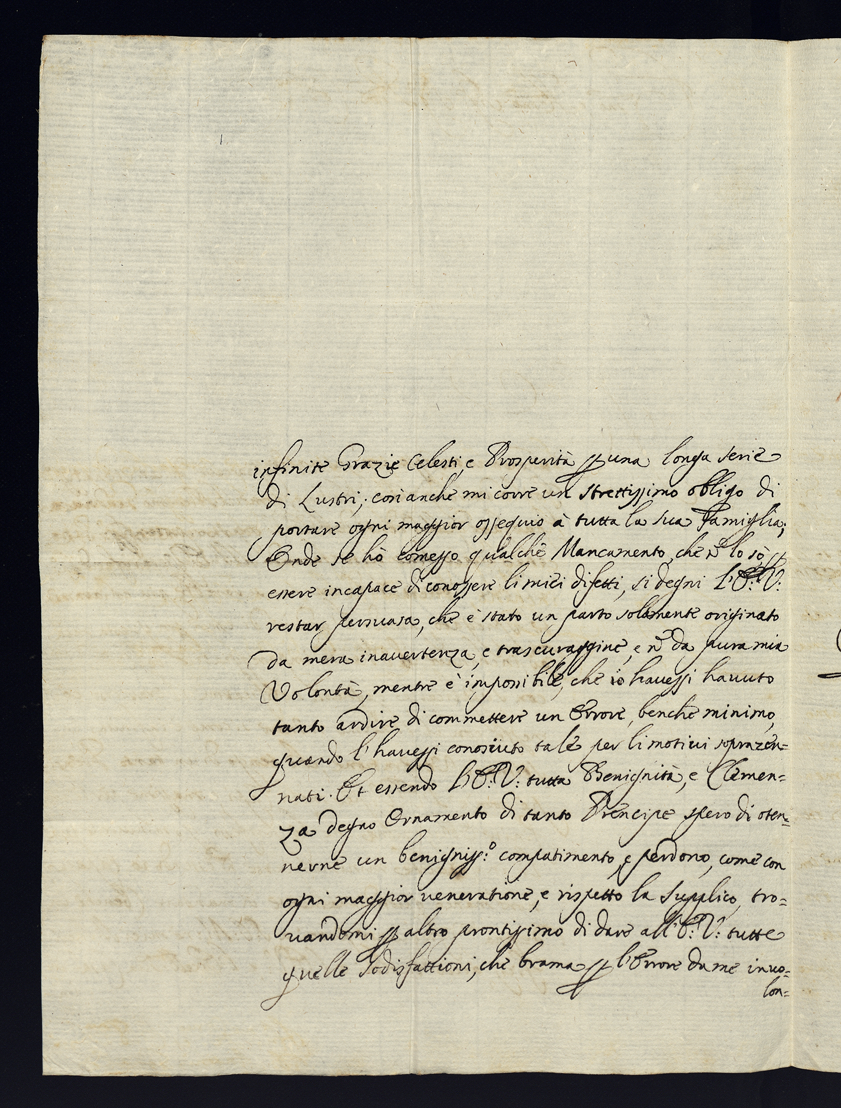 infinite Grazie Celesti, e Prosperità p una longa serie
di Lustri; così anche mi corre un strettissimo obligo di
portare ogni maggior ossequio à tutta la sua Famiglia;
Onde se hò comesso qualche Mancamento, che nõ lo sò p
essere incapace di conoscere li miei difetti, si degni L'E: V:
restar persuasa, che è stato un parto solamente originato
da mera inavertenza, e trascuraggine, e nõ da pura mia
Volontà, mentre è impossibile, che io havessi havuto
tanto ardire di commettere un Errore, benche minimo,
quando l'havessi conosciuto tale per li motivi soprazen=
nati. Et essendo L'E: V: tutta Benignità, e Clemen=
za degno Ornamento di tanto Prencipe spero di oten=
nerne un benigniss:º compatimento, e perdono, come con
ogni maggior veneratione, e rispetto la supplico, tro=
vandomi p altro prontissimo di dare all'E: V: tutte
quelle Sodisfattioni, che brama p l'Errore da me invo=
lon=